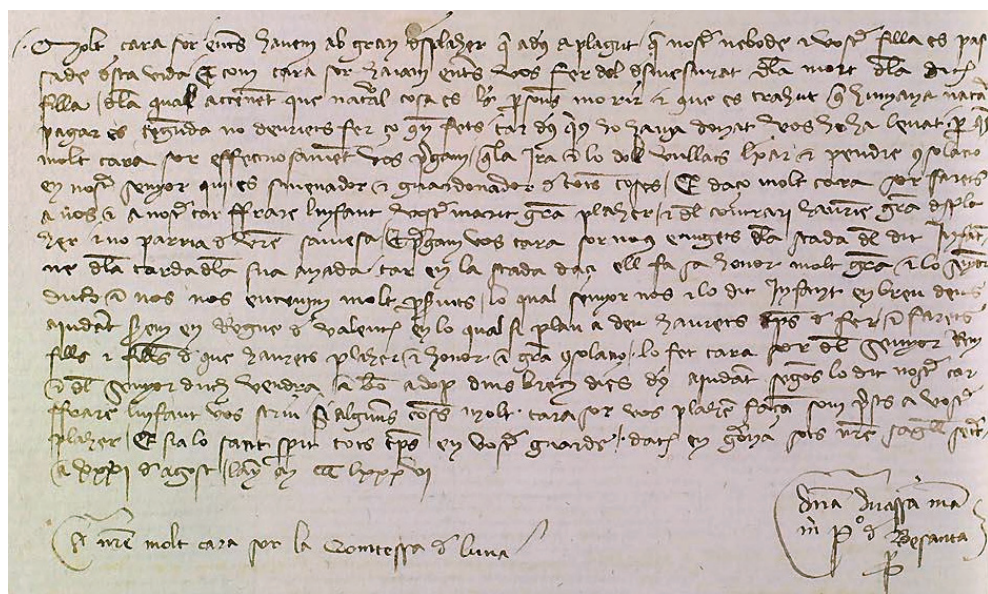 Molt cara sor entes havem ab gran desplaher q̄ a deu a plagut q̄ nostͬ neboda e vostͬ filla es pas
sade dsta vida E com cara sor hajam entes vos fer dol desmesurat dela mort dela dita
filla dela qual attenent que natural cosa es les persones morir e que es trahut q̄ humana natura
pagar es tenguda no deuriets fer ço q̄n fets car deu q̄ us ho havia donat vos ho ha levat per q̄
molt cara sor affectuosament vos pregam q̄ la ira e lo dol vullats lexar e pendre consolacio
en nostͬ senyor qui es smenador e guardonador d totes coses E daço molt cara sor farets
a nos e a nostͬ car ffrare linfant vostͬ marit gran plaher e del contrari hauriē gran desplа
her e no parria d vrē saviesa E pregam vos cara sor no us enugets dela stada del dit Infant
ne dela tarda dela sua anada car en la stada daci ell fa sa honor molt gran e lo senyor
duch e nos nos entenem molt lo qual senyor nos e lo dit Infant en breu deus
ajudant serem en Regne d Valencia en lo qual si plau a deu haurets temps d fer e farets
fills e filles d que haurets plaher e honor e gran consolacio lo fet cara sor del senyor Rey
e del senyor duch vendra a bō adop dins breus dies deu ajudant segons lo dit nostͬ car
ffrare linfant vos scriu Si algunes coses molt cara sor vos plahen façam som prests a vostͬ
plaher E sia lo sant spirit tots temps en vostͬ guarda dat en Gerona sots nrē sagell secret
a xxxi dagost lany M CCC lxxxvii
A nrē molt cara sor la Comtessa d luna
dn̄a duassa ma
m̄ Pº d Besanta